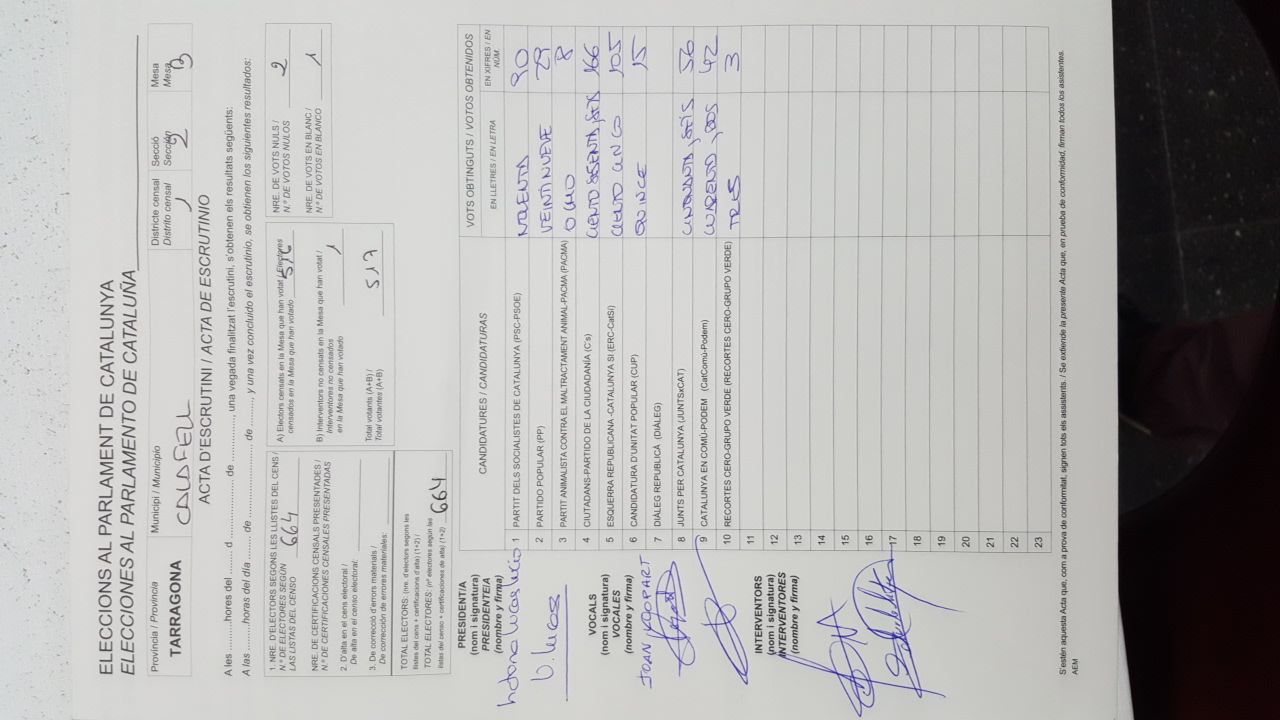 ELECCIONS AL PARLAMENT DE CATALUNYA
ELECCIONES AL PARLAMENTO DE CATALUÑA
Província / Provincia
TARRAGONA
Municipi / Municipio
CALAFELL
Districte censal
Distrito censal
1
Secció
Sección
2
Mesa
Mesa
B
ACTA D'ESCRUTINI / ACTA DE ESCRUTINIO
A les ..........hores del ........ d ........................ de ..............., una vegada finalitzat l'escrutini, s'obtenen els resultats següents:
A las ..........horas del día ........ de ........................ de .........., y una vez concluido el escrutinio, se obtienen los siguientes resultados:
1. NRE. D'ELECTORS SEGONS LES LLISTES DEL CENS /
N.º DE ELECTORES SEGÚN
LAS LISTAS DEL CENSO 664
NRE. DE CERTIFICACIONS CENSALS PRESENTADES /
N.º DE CERTIFICACIONES CENSALES PRESENTADAS
2. D'alta en el cens electoral /
De alta en el censo electoral:
3. De correcció d'errors materials /
De corrección de errores materiales:
TOTAL ELECTORS: (nre. d'electors segons les
llistes del cens + certificacions d'alta) (1+2) /
TOTAL ELECTORES: (nº electores según las
listas del censo + certificaciones de alta) (1+2) 664
A) Electors censats en la Mesa que han votat / Electores
censados en la Mesa que han votado 516
B) Interventors no censats en la Mesa que han votat /
Interventores no censados
en la Mesa que han votado 1
Total votants (A+B) /
Total votantes (A+B) 517
NRE. DE VOTS NULS /
N.º DE VOTOS NULOS 2
NRE. DE VOTS EN BLANC /
N.º DE VOTOS EN BLANCO 1
PRESIDENT/A
(nom i signatura)
PRESIDENTE/A
(nombre y firma)
VOCALS
(nom i signatura)
VOCALES
(nombre y firma)
JOAN
INTERVENTORS
(nom i signatura)
INTERVENTORES
(nombre y firma)
CANDIDATURES / CANDIDATURAS
VOTS OBTINGUTS / VOTOS OBTENIDOS
EN LLETRES / EN LETRA
EN XIFRES / EN NÚM.
1 PARTIT DELS SOCIALISTES DE CATALUNYA (PSC-PSOE) NOVENTA 90
2 PARTIDO POPULAR (PP) VEINTINUEVE 29
3 PARTIT ANIMALISTA CONTRA EL MALTRACTAMENT ANIMAL-PACMA (PACMA) OCHO 8
4 CIUTADANS-PARTIDO DE LA CIUDADANÍA (C's) CIENTO SESENTA Y SEIS 166
5 ESQUERRA REPUBLICANA -CATALUNYA SÍ (ERC-CatSí) CIENTO CINCO 105
6 CANDIDATURA D'UNITAT POPULAR (CUP) QUINCE 15
7 DIÀLEG REPUBLICÀ (DIÀLEG)
8 JUNTS PER CATALUNYA (JUNTSxCAT) CINCUENTA Y SEIS 56
9 CATALUNYA EN COMÚ-PODEM (CatComú-Podem) CUARENTA Y DOS 42
10 RECORTES CERO-GRUPO VERDE (RECORTES CERO-GRUPO VERDE) TRES 3
11
12
13
14
15
16
17
18
19
20
21
22
23
S'estén aquesta Acta que, com a prova de conformitat, signen tots els assistents. / Se extiende la presente Acta que, en prueba de conformidad, firman todos los asistentes.
AEM